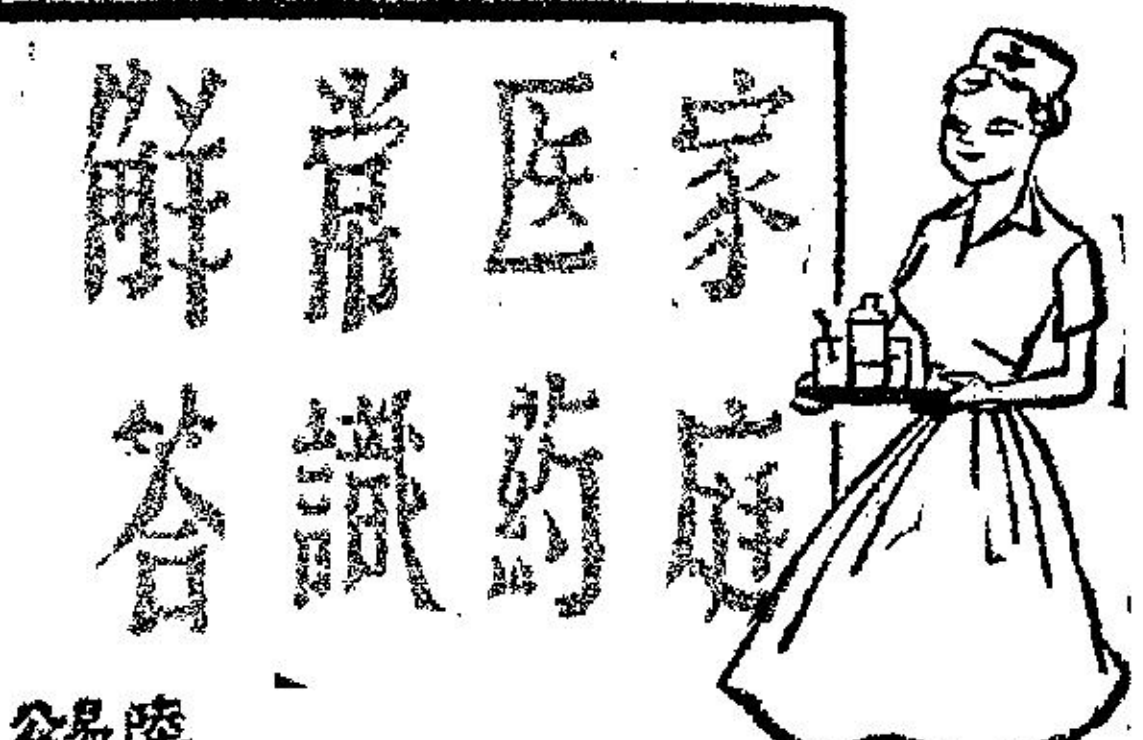 家庭
医药
常識
解答
陸易公